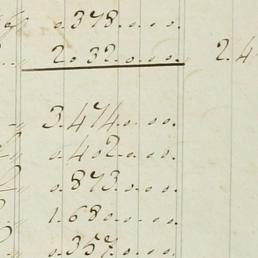 .378....
2.032.... 2.4
3.474....
.402....
.873....
1.680....
.357....